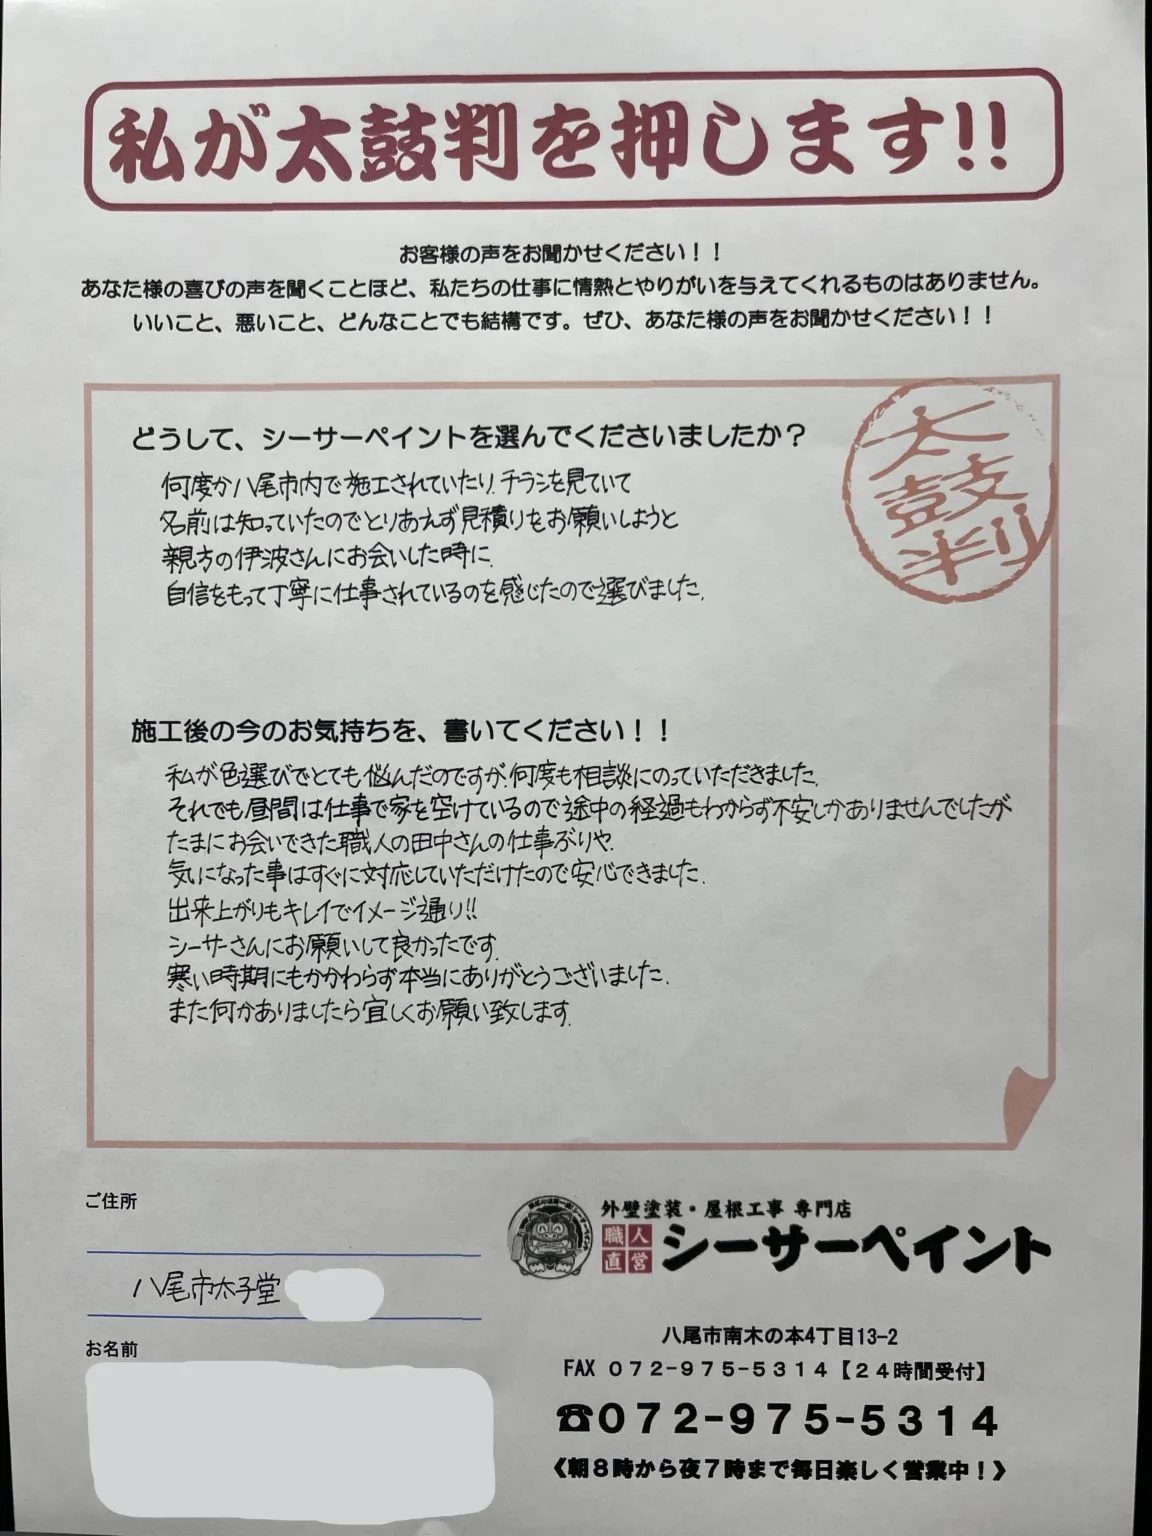 私が太鼓判を押します!!
お客様の声をお聞かせください！！
あなた様の喜びの声を聞くことほど、私たちの仕事に情熱とやりがいを与えてくれるものはありません。
いいこと、悪いこと、どんなことでも結構です。ぜひ、あなた様の声をお聞かせください！！
太鼓判
どうして、シーサーペイントを選んでくださいましたか？
何度か八尾市内で施工されていたり、チラシを見ていて
名前は知っていたのでとりあえず見積りをお願いしようと
親方の伊波さんにお会いした時に、
自信をもって丁寧に仕事されているのを感じたので選びました。
施工後の今のお気持ちを、書いてください！！
私が色選びでとても悩んだのですが、何度も相談にのっていただきました。
それでも昼間は仕事で家を空けているので途中の経過もわからず不安しかありませんでしたが
たまにお会いできた職人の田中さんの仕事ぶりや、
気になった事はすぐに対応していただけたので安心できました。
出来上がりもキレイでイメージ通り!!
シーサーさんにお願いして良かったです。
寒い時期にもかかわらず本当にありがとうございました。
また何かありましたら宜しくお願い致します。
ご住所
八尾市太子堂
お名前
外壁塗装・屋根工事 専門店
職人直営 シーサーペイント
八尾市南木の本4丁目13-2
FAX 072-975-5314【24時間受付】
☎072-975-5314
《朝8時から夜7時まで毎日楽しく営業中！》